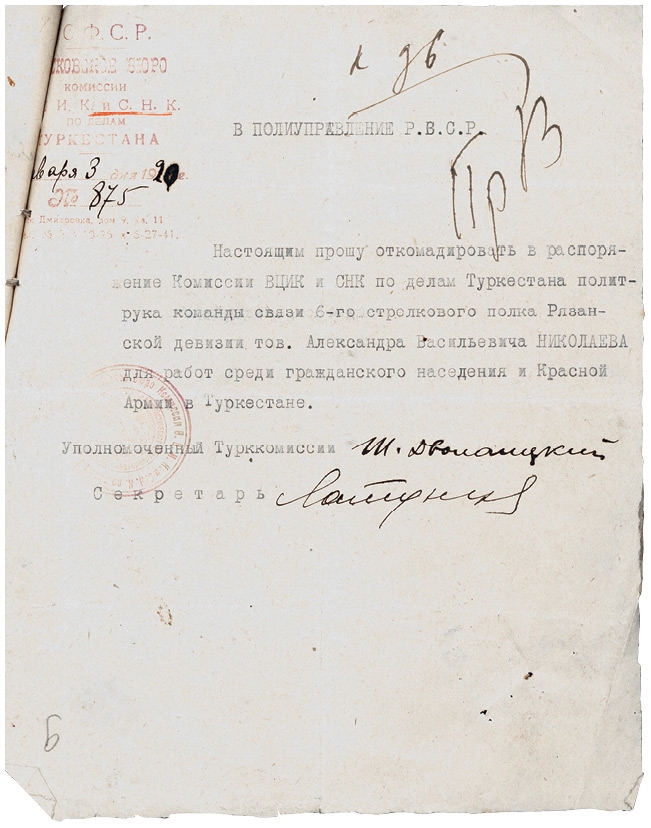 С.Ф.С.Р.
КОВСКОЕ БЮРО
КОМИССИИ
И.К. и С.Н.К.
ПО ДЕЛАМ
ТУРКЕСТАНА
варя 3 дня 1920 г.
№ 875
Дмитровка, дом
5-27-41.
к дв
Пр В
В ПОЛИУПРАВЛЕНИЕ Р.В.С.Р.
Настоящим прошу откомадировать в распоря-
жение Комиссии ВЦИК и СНК по делам Туркестана полит-
рука команды связи 6-го стрелкового полка Рязан-
ской девизии тов. Александра Васильевича НИКОЛАЕВА
для работ среди гражданского населения и Красной
Армии в Туркестане.
Уполномоченный Турккомиссии Ш. Дволайцкий
Секретарь
9